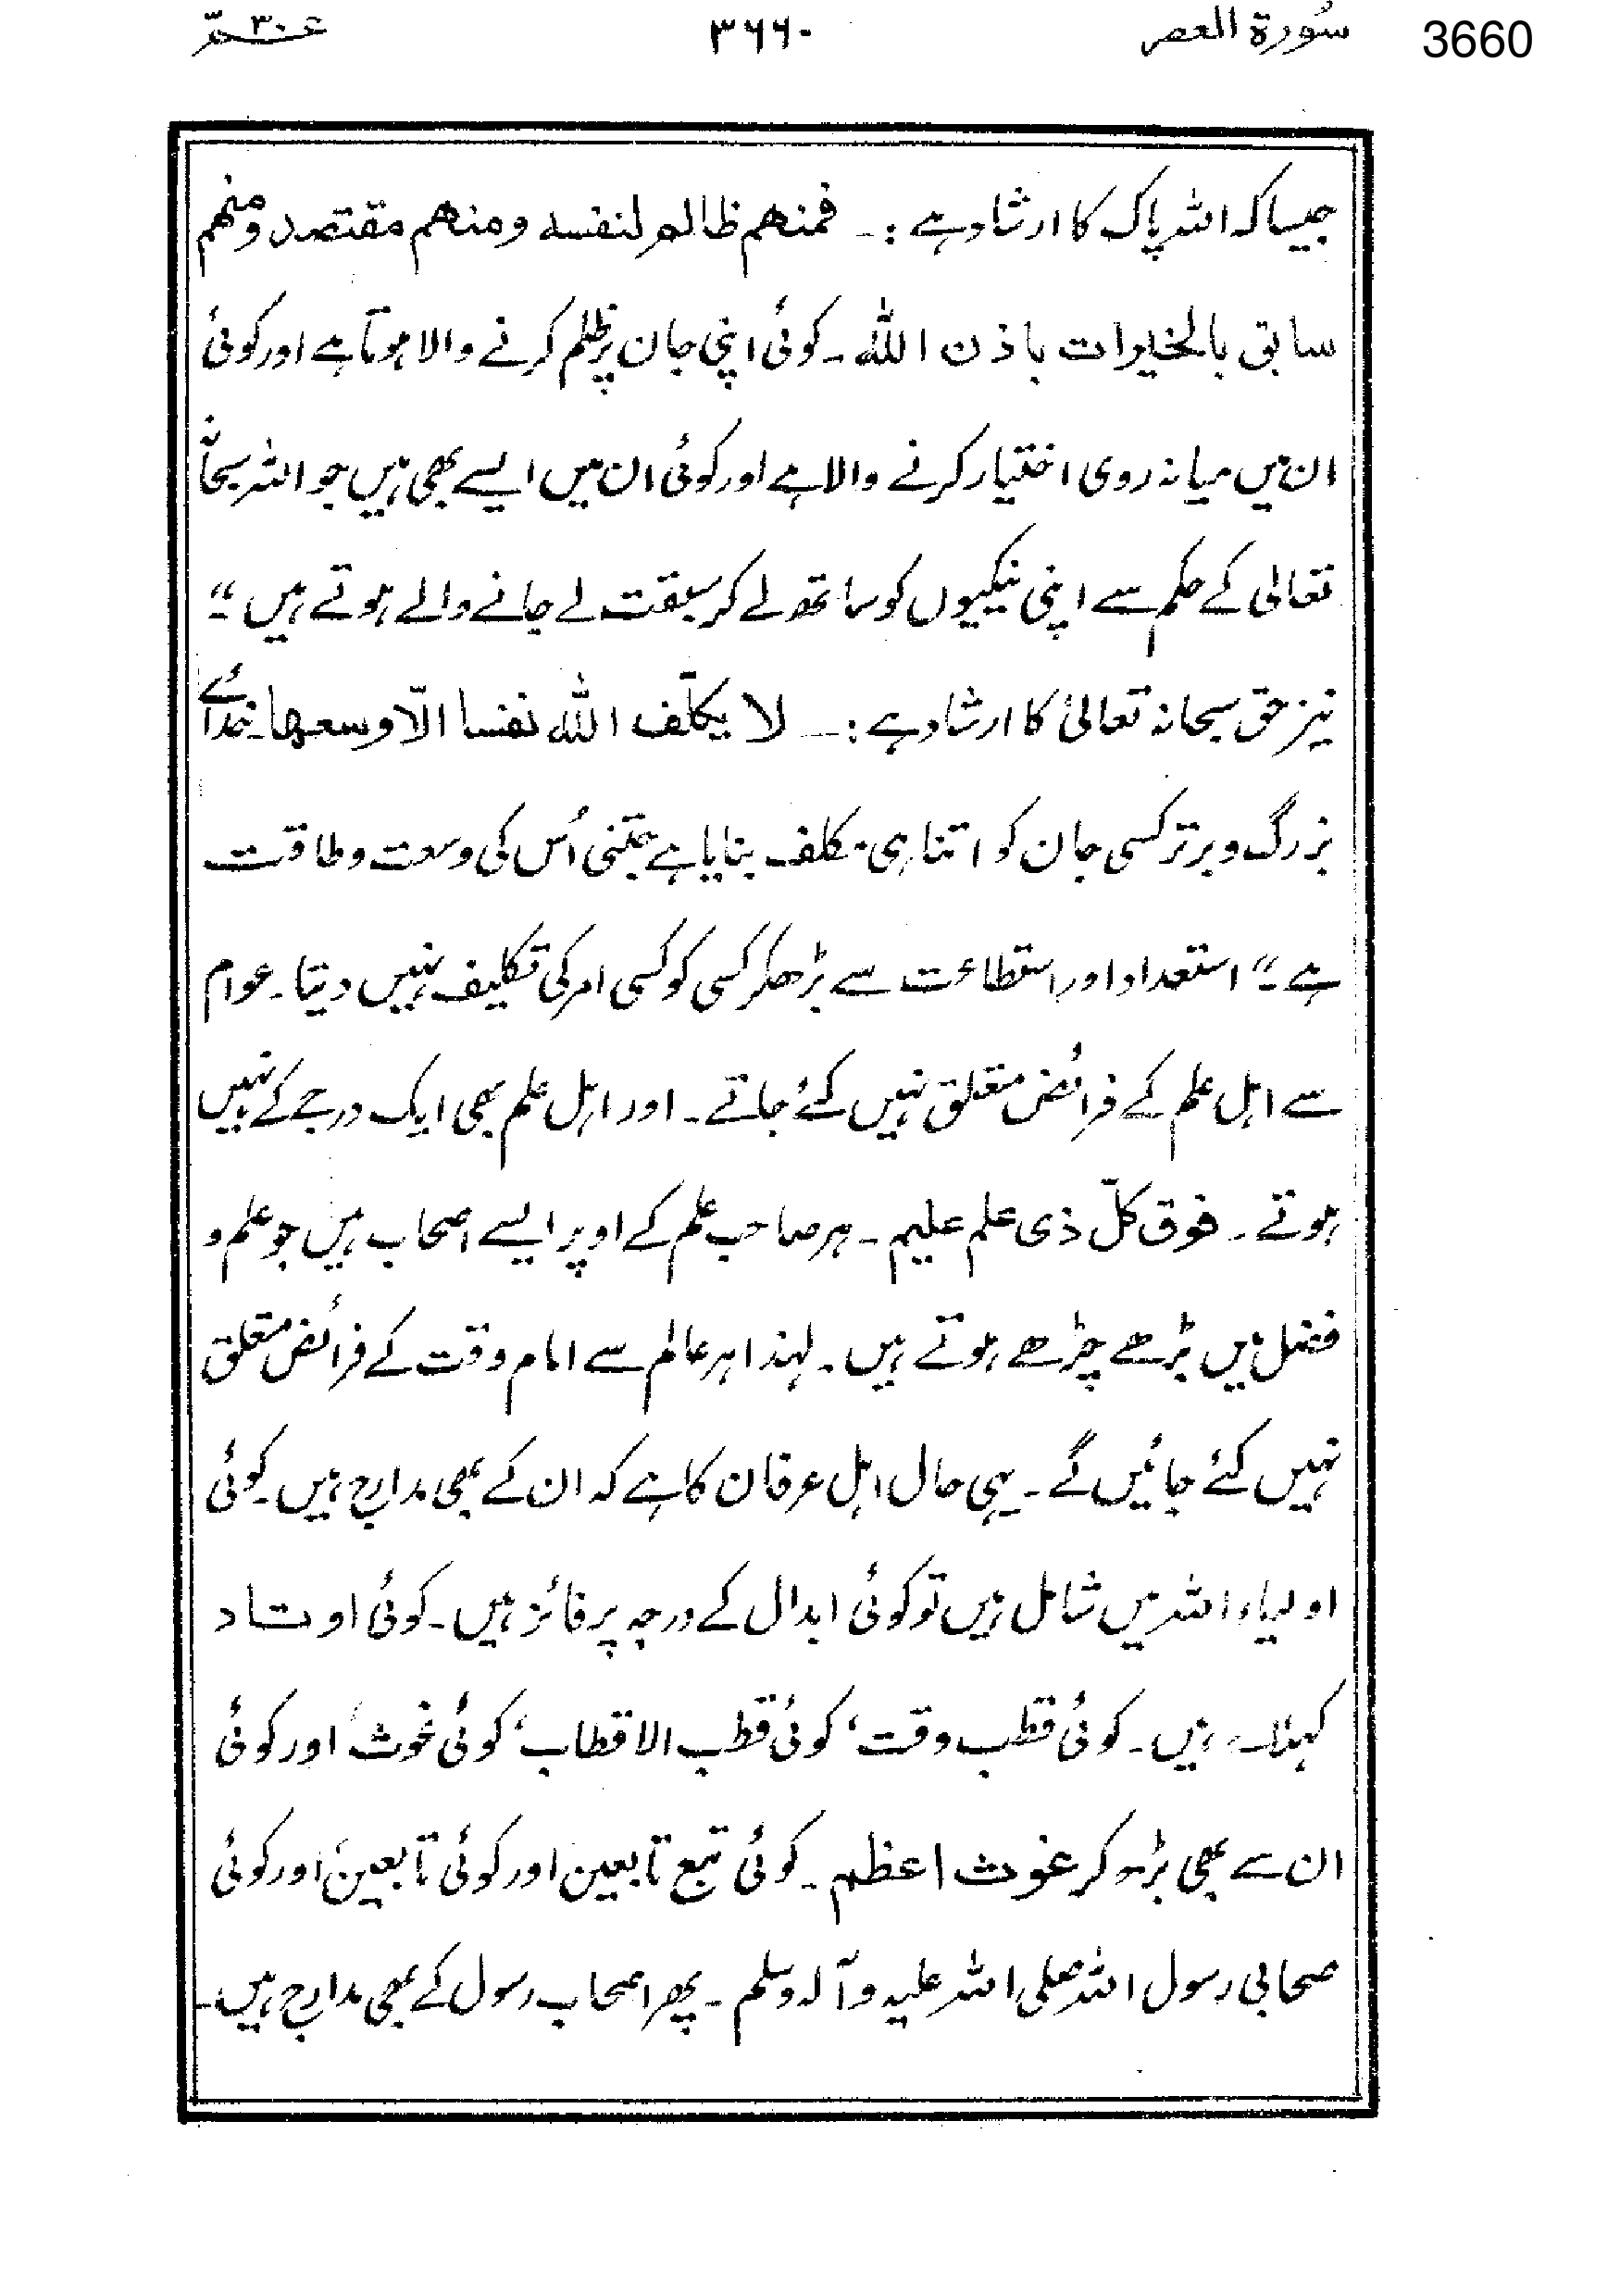 3660 سُورة العصر ۳۶۶۰ عـم ۳۰
جیسا کہ اللہ پاک کا ارشاد ہے :۔ فمنھم ظالم لنفسه ومنھم مقتصد ومنھم
سابق بالخیرات باذن اللّٰہ ۔ کوئی اپنی جان پر ظلم کرنے والا ہوتا ہے اور کوئی
ان میں میانہ روی اختیار کرنے والا ہے اور کوئی ان میں ایسے بھی ہیں جو اللہ سبحانہٗ
تعالی کے حکم سے اپنی نیکیوں کو ساتھ لے کر سبقت لے جانے والے ہوتے ہیں ‘‘۔
نیز حق سبحانہ تعالیٰ کا ارشاد ہے :۔ لا یکلّف اللّٰہ نفسا الّا وسعھا۔ خدائے
بزرگ و برتر کسی جان کو اتنا ہی مکلف بنایا ہے جتنی اُس کی وسعت و طاقت
ہے ‘‘۔ استعداد اور استطاعت سے بڑھکر کسی کو کسی امر کی تکلیف نہیں دیتا۔ عوام
سے اہل علم کے فرائض متعلق نہیں کئے جاتے ۔ اور اہل علم بھی ایک درجے کے نہیں
ہوتے ۔ فوق کلّ ذی علم علیم ۔ ہر صاحب علم کے اوپر ایسے اصحاب ہیں جو علم و
فضل میں بڑھے چڑھے ہوتے ہیں ۔ لہذا ہر عالم سے امام وقت کے فرائض متعلق
نہیں کئے جائیں گے ۔ یہی حال اہل عرفان کا ہے کہ ان کے بھی مدارج ہیں ۔ کوئی
اولیاء اللہ میں شامل ہیں تو کوئی ابدال کے درجہ پر فائز ہیں ۔ کوئی اوتاد
ہیں ۔ کوئی قطب وقت، کوئی قطب الاقطاب، کوئی غوث اور کوئی
ان سے بھی بڑھ کر غوث اعظم ۔ کوئی تبع تابعین اور کوئی تابعین اور کوئی
صحابی رسول اللہ صلی اللہ علیہ وآلہ وسلم ۔ پھر اصحاب رسول کے بھی مدارج ہیں ۔